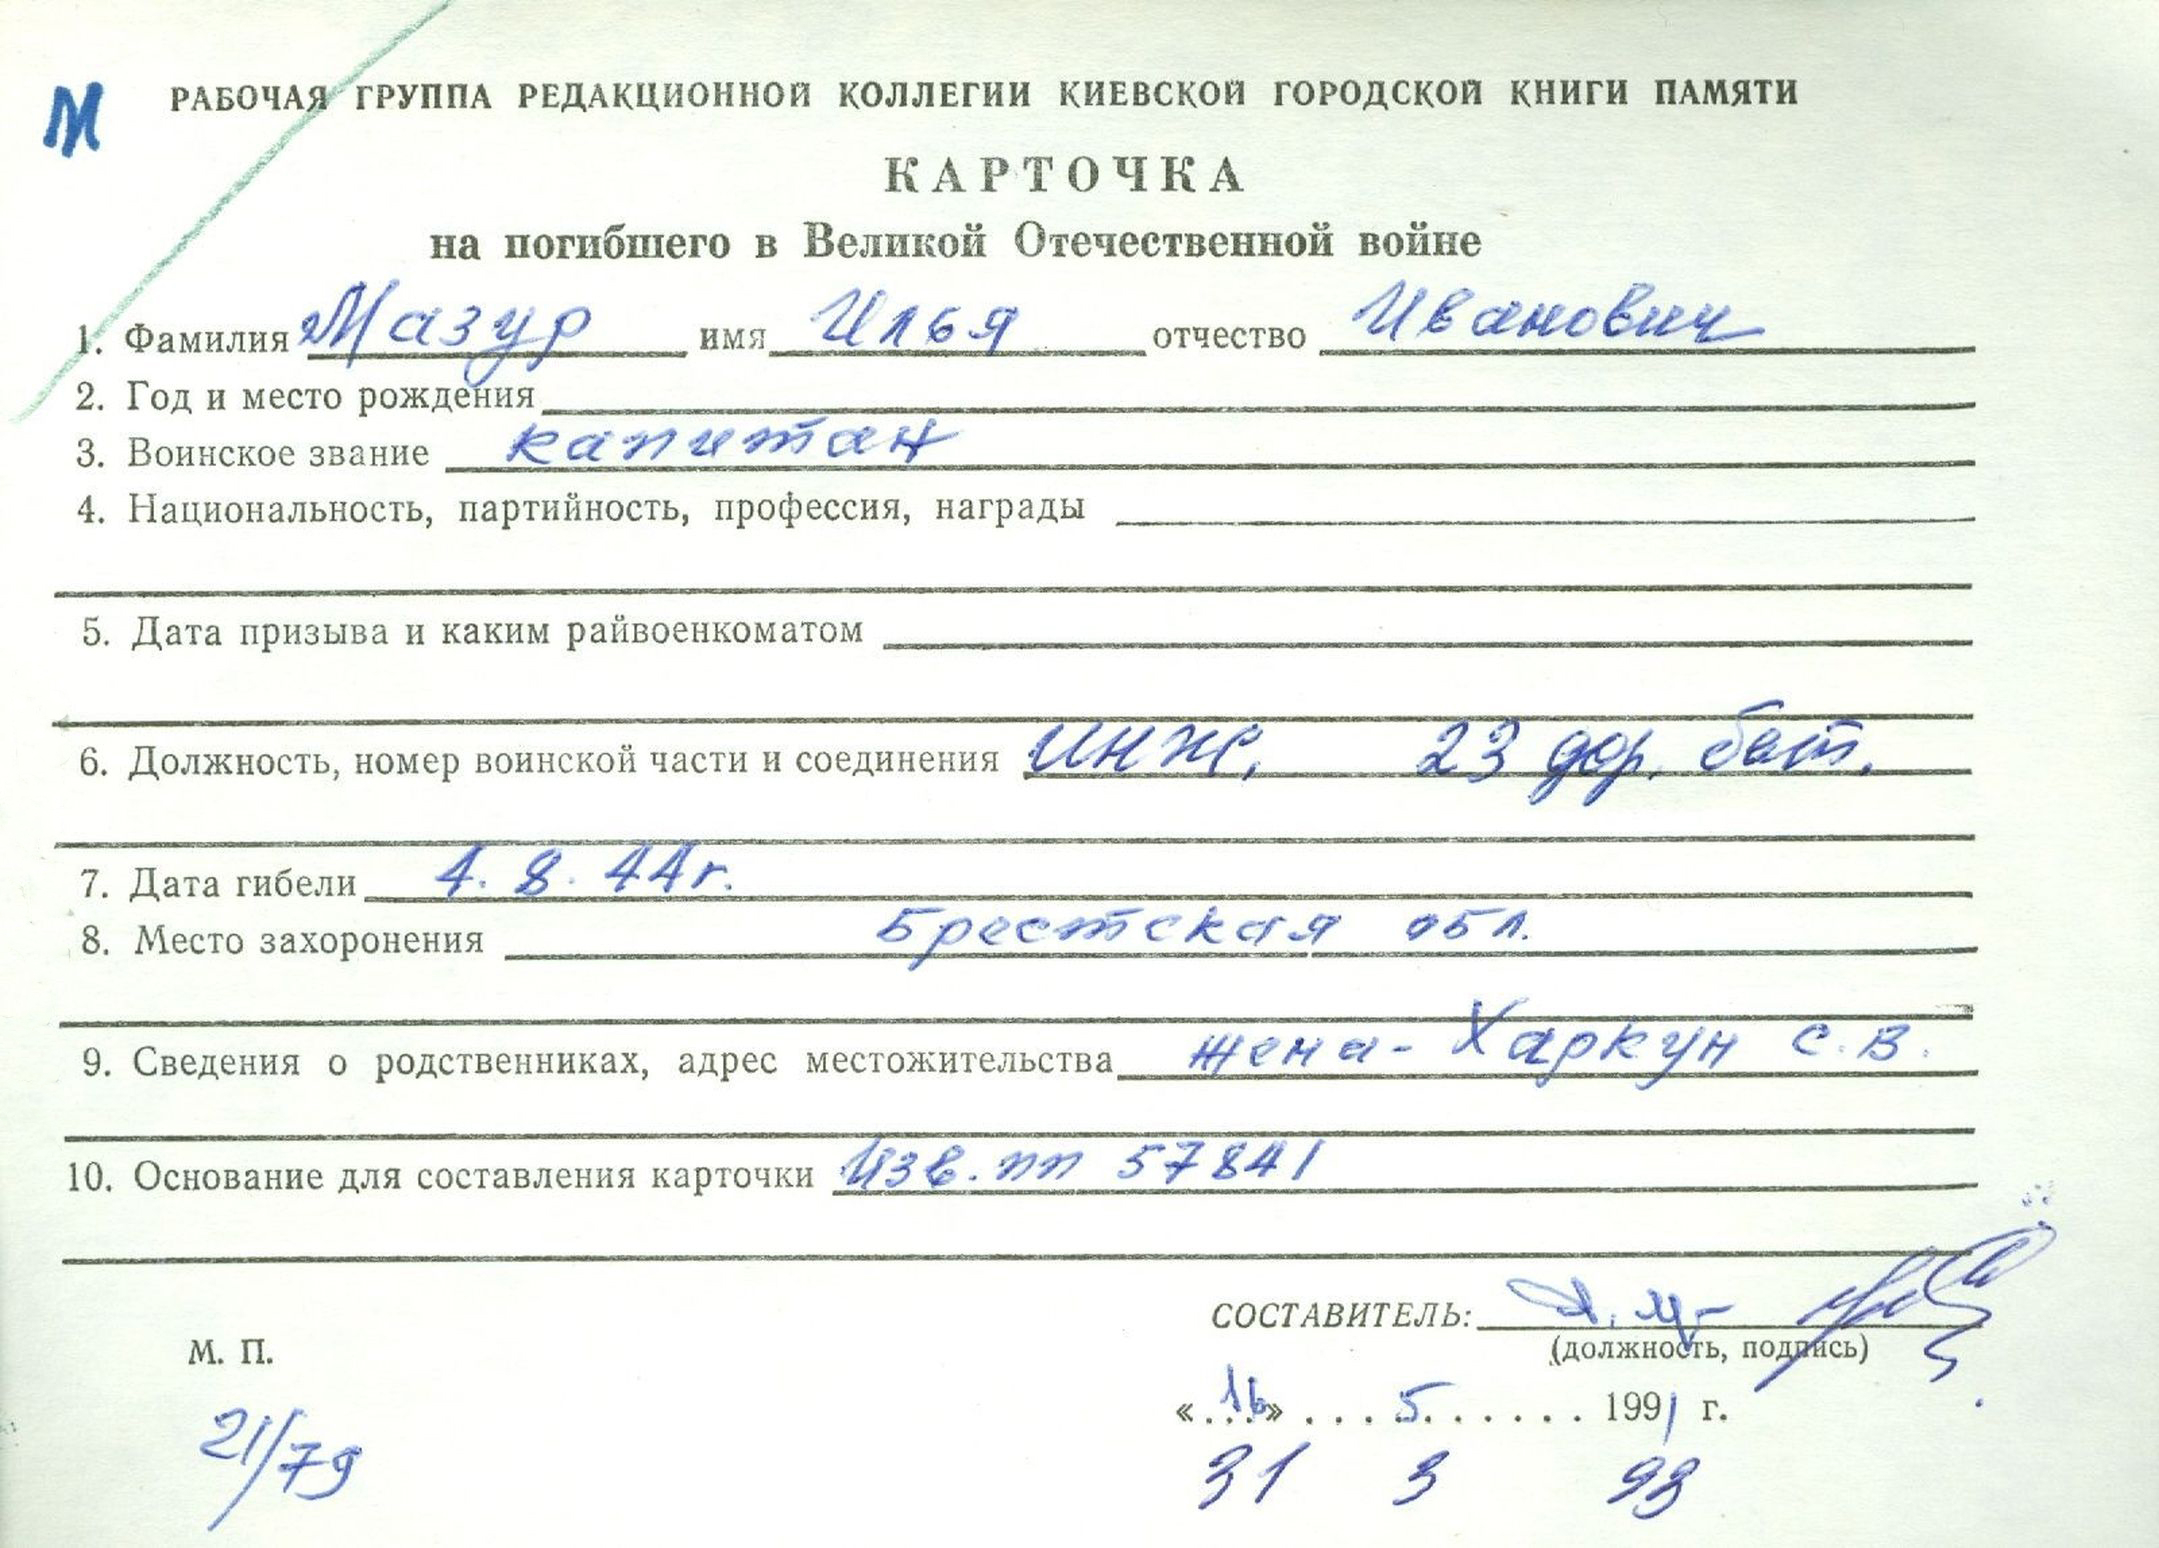 М РАБОЧАЯ ГРУППА РЕДАКЦИОННОЙ КОЛЛЕГИИ КИЕВСКОЙ ГОРОДСКОЙ КНИГИ ПАМЯТИ
КАРТОЧКА
на погибшего в Великой Отечественной войне
1. Фамилия Мазур имя Илья отчество Иванович
2. Год и место рождения
3. Воинское звание капитан
4. Национальность, партийность, профессия, награды
5. Дата призыва и каким райвоенкоматом
6. Должность, номер воинской части и соединения инж. 23 дор. бат.
7. Дата гибели 4. 8. 44г.
8. Место захоронения Брестская обл.
9. Сведения о родственниках, адрес местожительства жена - Харкун С. В.
10. Основание для составления карточки Изв. пп 57841
СОСТАВИТЕЛЬ:
(должность, подпись)
М. П.
«16» 5 1991 г.
21/79
31 3 93